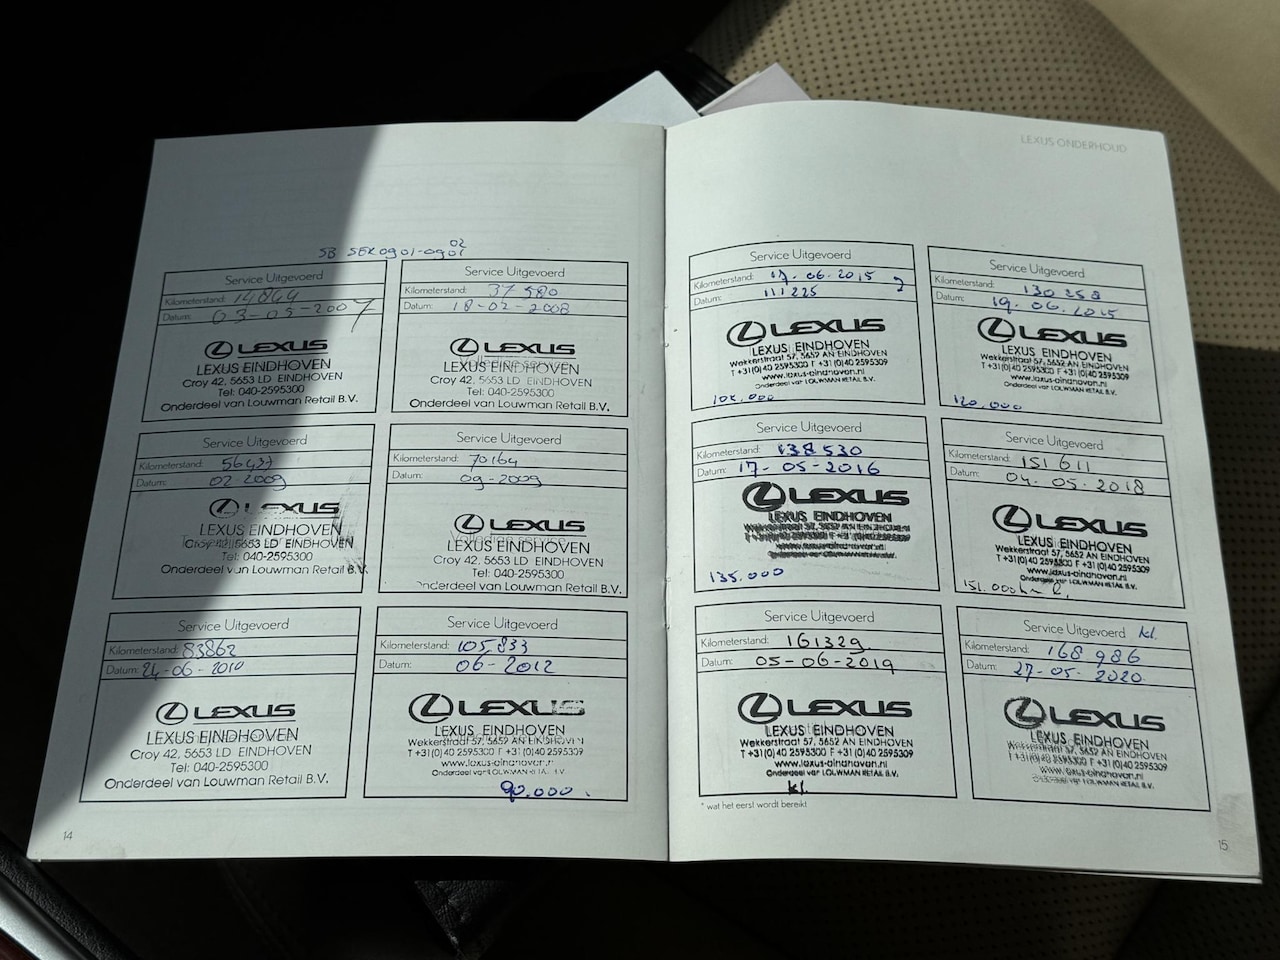 LEXUS ONDERHOUD
SB SEK0901-0901
02
Service Uitgevoerd
Kilometerstand: 14844
Datum: 03-05-2007
LEXUS
LEXUS EINDHOVEN
Croy 42, 5653 LD EINDHOVEN
Tel: 040-2595300
Onderdeel van Louwman Retail B.V.
Service Uitgevoerd
Kilometerstand: 37580
Datum: 18-02-2008
LEXUS
Volledige service
LEXUS EINDHOVEN
Croy 42, 5653 LD EINDHOVEN
Tel: 040-2595300
Onderdeel van Louwman Retail B.V.
Service Uitgevoerd
Kilometerstand: 56437
Datum: 02 2009
LEXUS
LEXUS EINDHOVEN
Croy 42, 5653 LD EINDHOVEN
Tel: 040-2595300
Onderdeel van Louwman Retail B.V.
Service Uitgevoerd
Kilometerstand: 70164
Datum: 09-2009
LEXUS
Volledige service
LEXUS EINDHOVEN
Croy 42, 5653 LD EINDHOVEN
Tel: 040-2595300
Onderdeel van Louwman Retail B.V.
Service Uitgevoerd
Kilometerstand: 83862
Datum: 24-06-2010
LEXUS
LEXUS EINDHOVEN
Croy 42, 5653 LD EINDHOVEN
Tel: 040-2595300
Onderdeel van Louwman Retail B.V.
Service Uitgevoerd
Kilometerstand: 105.833
Datum: 06-2012
LEXUS
LEXUS EINDHOVEN
Wekkerstraat 57, 5652 AN EINDHOVEN
T +31(0)40 2595300 F +31(0)40 2595309
www.lexus-eindhoven.nl
Onderdeel van LOUWMAN RETAIL B.V.
90.000.
14
Service Uitgevoerd
Kilometerstand: 17-06-2015
Datum: 111225
LEXUS
LEXUS EINDHOVEN
Wekkerstraat 57, 5652 AN EINDHOVEN
T +31(0)40 2595300 F +31(0)40 2595309
www.lexus-eindhoven.nl
Onderdeel van LOUWMAN RETAIL B.V.
Service Uitgevoerd
Kilometerstand: 130258
Datum: 19.06.2015
LEXUS
LEXUS EINDHOVEN
Wekkerstraat 57, 5652 AN EINDHOVEN
T +31(0)40 2595300 F +31(0)40 2595309
www.lexus-eindhoven.nl
Onderdeel van LOUWMAN RETAIL B.V.
120,000
Service Uitgevoerd
Kilometerstand: 138530
Datum: 17-05-2016
LEXUS
LEXUS EINDHOVEN
135.000
Service Uitgevoerd
Kilometerstand: 151611
Datum: 04.05.2018
LEXUS
LEXUS EINDHOVEN
Wekkerstraat 57, 5652 AN EINDHOVEN
T +31(0)40 2595300 F +31(0)40 2595309
www.lexus-eindhoven.nl
Onderdeel van LOUWMAN RETAIL B.V.
151.000km
Service Uitgevoerd
Kilometerstand: 161329
Datum: 05-06-2019
LEXUS
LEXUS EINDHOVEN
Wekkerstraat 57, 5652 AN EINDHOVEN
T +31(0)40 2595300 F +31(0)40 2595309
www.lexus-eindhoven.nl
Onderdeel van LOUWMAN RETAIL B.V.
kl.
Service Uitgevoerd kl.
Kilometerstand: 168986
Datum: 27-05-2020
LEXUS
LEXUS EINDHOVEN
Wekkerstraat 57, 5652 AN EINDHOVEN
T +31(0)40 2595300 F +31(0)40 2595309
www.lexus-eindhoven.nl
* wat het eerst wordt bereikt
15